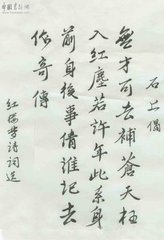 石上偈
無才可去補蒼天枉
入紅塵若許年此系身
前身後事倩誰記去
作奇傳
紅樓夢詩詞選